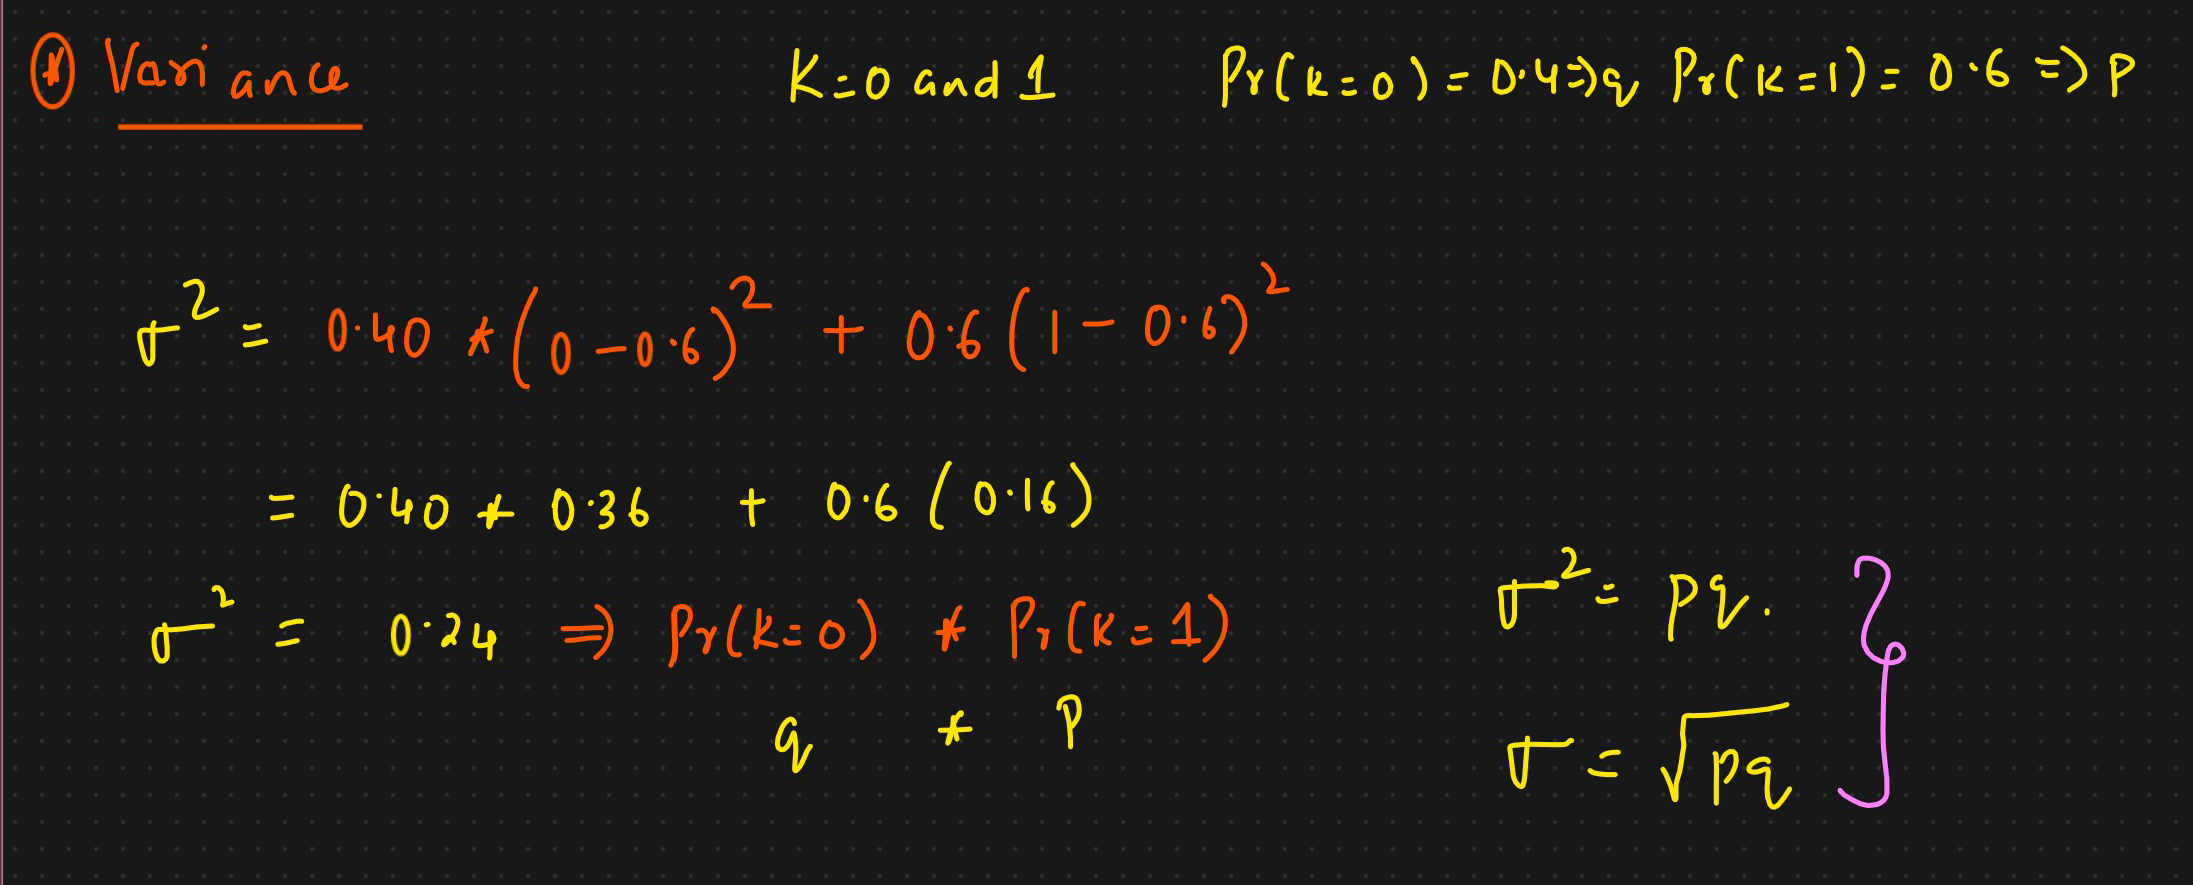 * Variance K=0 and 1 Pr(k=0) = 0.4 => q Pr(k=1) = 0.6 => p
σ² = 0.40 * (0-0.6)² + 0.6 (1-0.6)²
= 0.40 * 0.36 + 0.6 (0.16)
σ² = 0.24 => Pr(k=0) * Pr(k=1)
q * p
σ² = pq.
σ = √pq